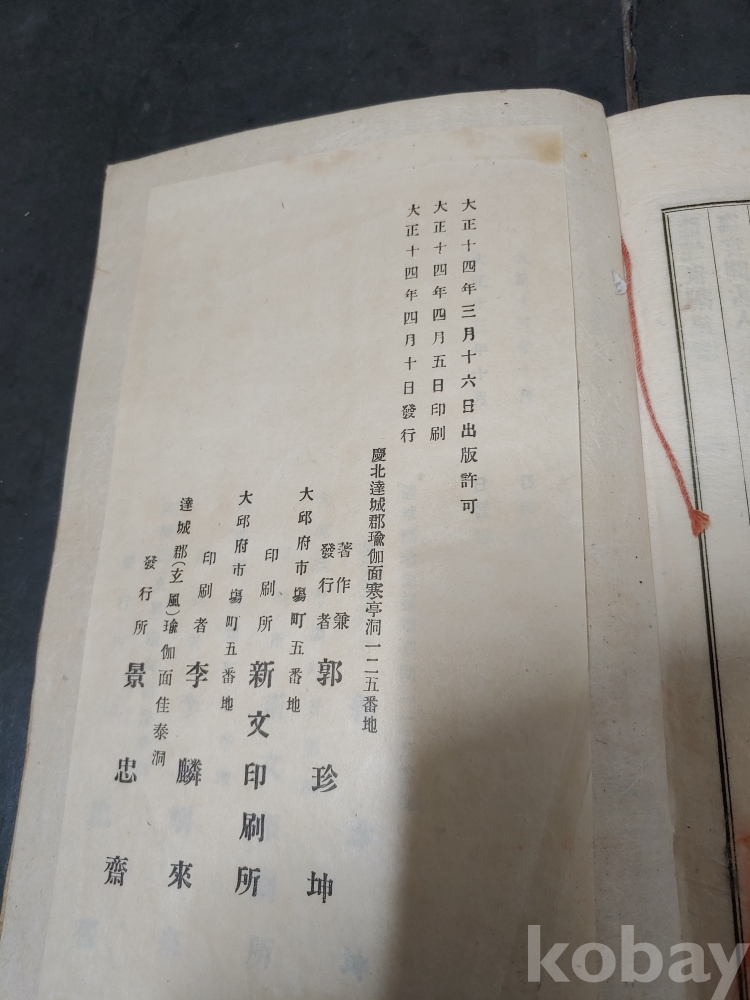 大正十四年三月十六日出版許可
大正十四年四月五日印刷
大正十四年四月十日發行
慶北達城郡瑜伽面寒亭洞一二五番地
著作兼
發行者 郭珍坤
大邱府市塲町五番地
印刷所 新文印刷所
大邱府市塲町五番地
印刷者 李麟來
達城郡(玄風)瑜伽面佳泰洞
發行所 景忠齋
kobay